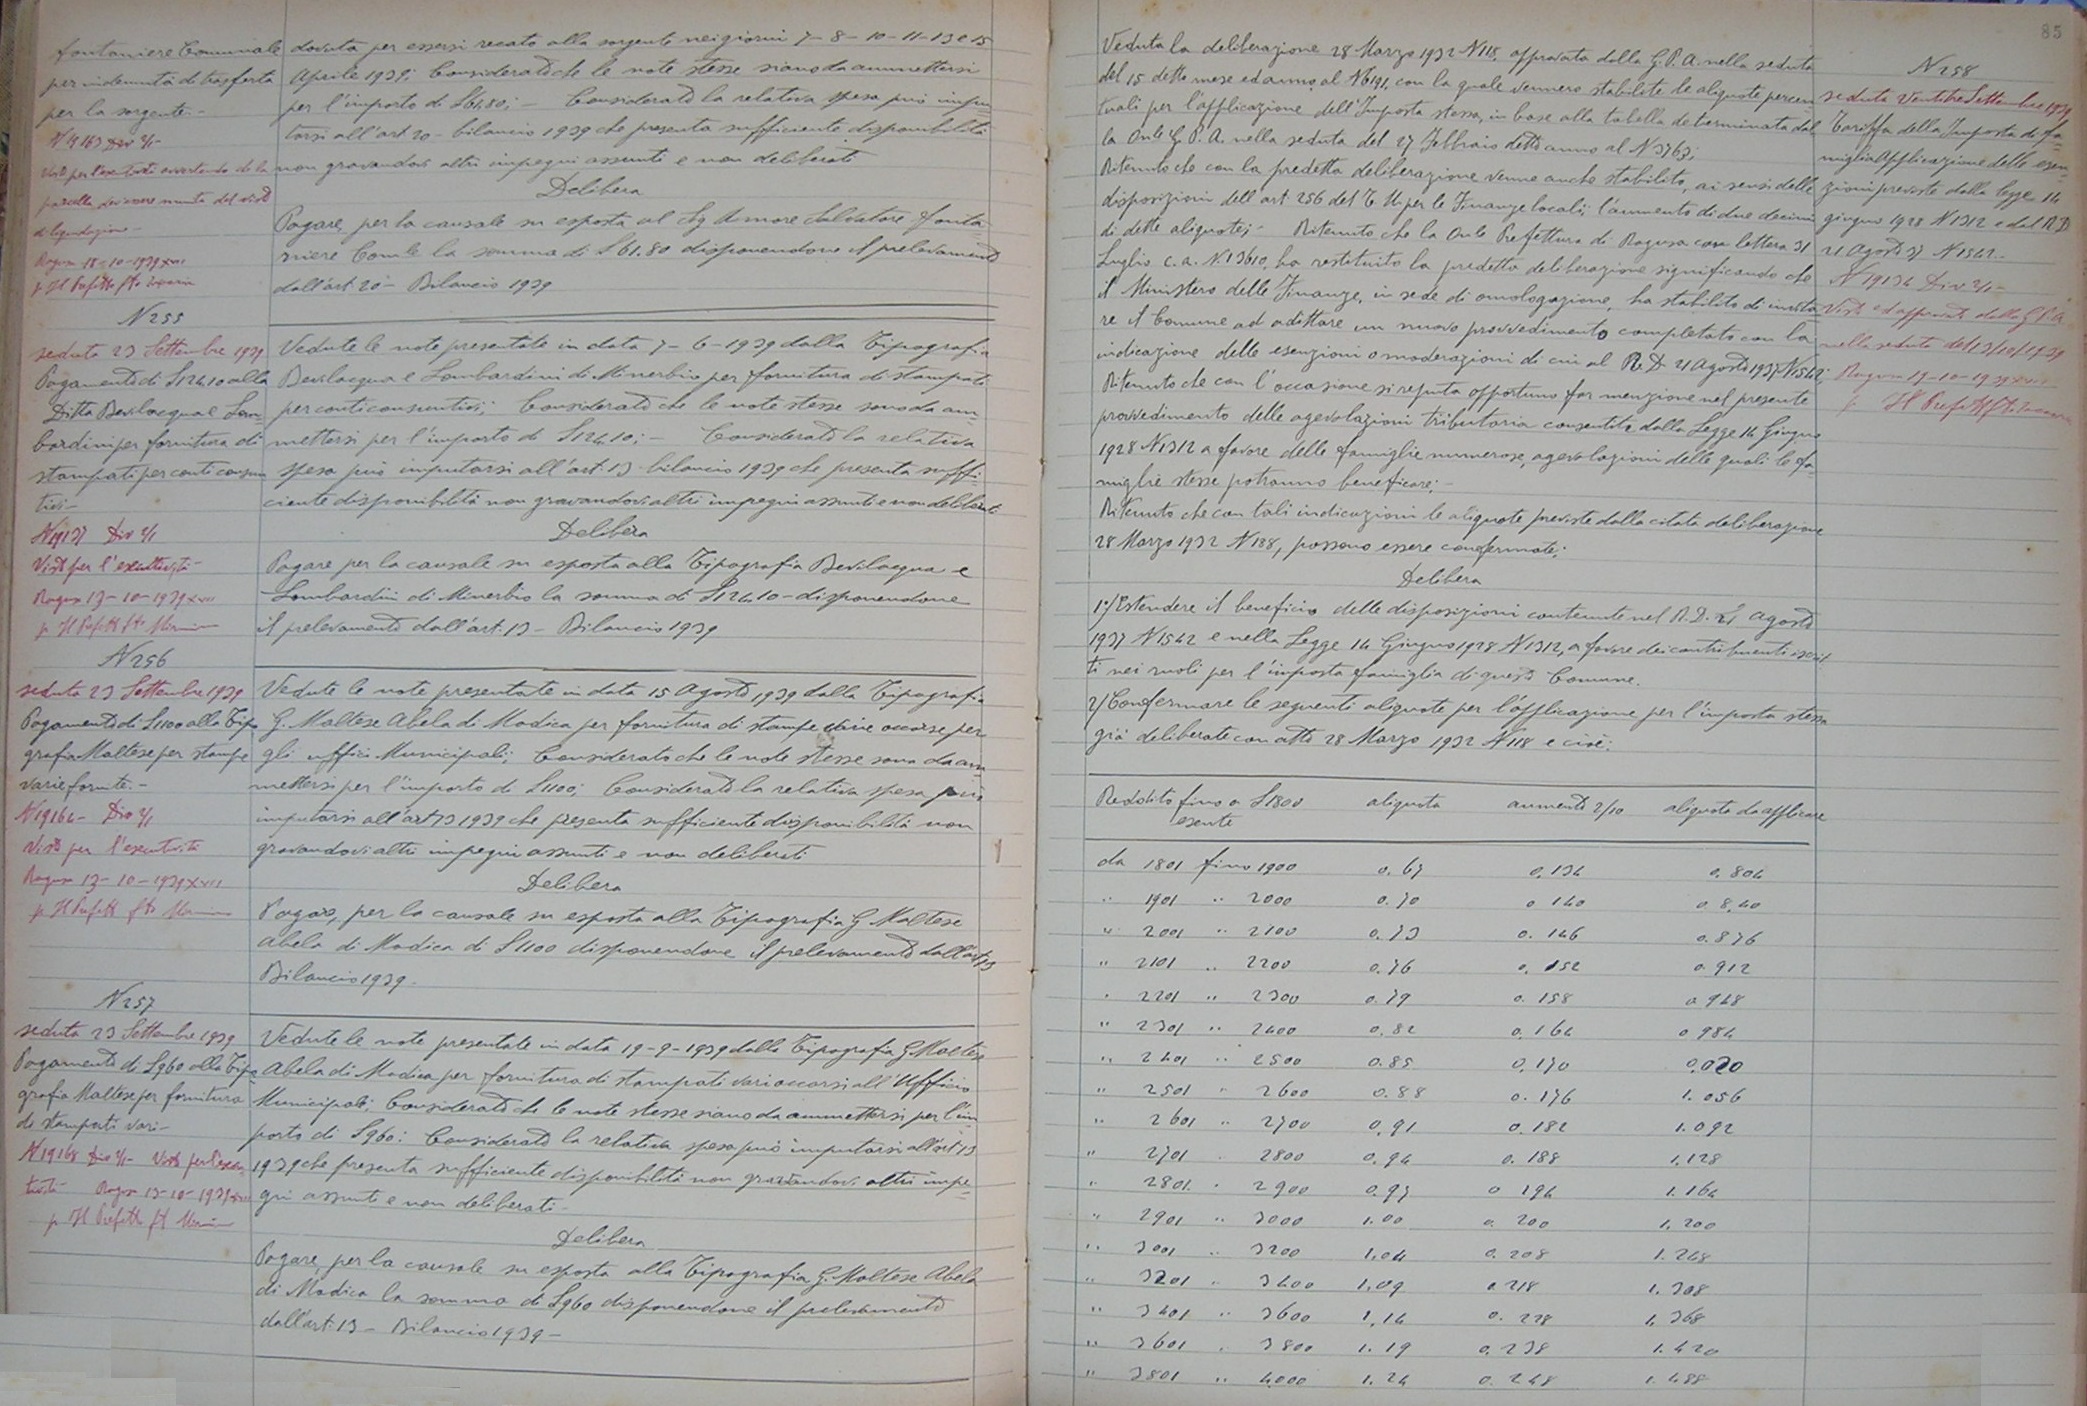 fontaniere Comunale
per indennità di trasferta
per la sorgente -
Visto per l'esecutività avvertendo che la
parcella dev'essere munita del visto
di liquidazione -
Ragusa 18-10-1939 XVII
p. Il Prefetto fto
dovuta per essersi recato alla sorgente nei giorni 7-8-10-11-13 e 15
Aprile 1939; Considerato che le note stesse siano da ammettersi
per l'importo di £61,80; - Considerato la relativa spesa può impu
tarsi all'art. 20 - bilancio 1939 che presenta sufficiente disponibilità
non gravandovi altri impegni assunti e non deliberati
Delibera
Pagare, per la causale su esposta al Sg. Amore Salvatore fonta
niere Com/le la somma di £61.80 disponendone il prelevamento
dall'art. 20 - Bilancio 1939
N 255
seduta 23 Settembre 1939
Pagamento di £124,10 alla
Ditta Bevilacqua e Lom-
bardini per fornitura di
stampati per conti consun
tivi -
N19137 Div 2/1
Visto per l'esecutività -
Ragusa 13-10-1939 XVII
p. Il Prefetto fto
Vedute le note presentate in data 7-6-1939 dalla Tipografia
Bevilacqua e Lombardini di Minerbio per fornitura di stampati
per conti consuntivi; Considerato che le note stesse sono da am-
mettersi per l'importo di £124,10; - Considerato la relativa
spesa può imputarsi all'art. 13 - bilancio 1939 che presenta suffi-
ciente disponibilità non gravandovi altri impegni assunti e non deliberati
Delibera
Pagare per la causale su esposta alla Tipografia Bevilacqua e
Lombardini di Minerbio la somma di £124,10 - disponendone
il prelevamento dall'art. 13 - Bilancio 1939
N 256
seduta 23 Settembre 1939
Pagamento di £1100 alla Tipo
grafia Maltese per stampe
varie fornite. -
N19164 - Div 2/1
Visto per l'esecutività
Ragusa 13-10-1939 XVII
p. Il Prefetto fto
Vedute le note presentate in data 15 Agosto 1939 dalla Tipografia
G. Maltese Abela di Modica per fornitura di stampe varie occorse per
gli uffici Municipali; Considerato che le note stesse sono da am
mettersi per l'importo di £1100; Considerato la relativa spesa può
imputarsi all'art 13 1939 che presenta sufficiente disponibilità non
gravandovi altri impegni assunti e non deliberati
Delibera
Pagare, per la causale su esposta alla Tipografia G. Maltese
Abela di Modica di £1100 disponendone il prelevamento dall'art. 13
Bilancio 1939.
N 257
seduta 23 Settembre 1939
Pagamento di £960 alla Tipo
grafia Maltese per fornitura
di stampati vari -
N19168 Div 2/1 - Visto per l'esecu
tività - Ragusa 13-10-1939 XVII
p. Il Prefetto fto
Vedute le note presentate in data 19-9-1939 dalla Tipografia G. Maltese
Abela di Modica per fornitura di stampati vari occorsi all'Ufficio
Municipale; Considerato che le note stesse siano da ammettersi per l'im
porto di £960; Considerato la relativa spesa può imputarsi all'art 13
1939 che presenta sufficiente disponibilità non gravandovi altri impe-
gni assunti e non deliberati -
Delibera
Pagare, per la causale su esposta alla Tipografia G. Maltese Abela
di Modica la somma di £960 disponendone il prelevamento
dall'art. 13 - Bilancio 1939 -
85
Veduta la deliberazione 28 Marzo 1932 N118, approvata dalla G.P.A. nella seduta
del 15 detto mese ed anno al N6191, con la quale vennero stabilite le aliquote percen
tuali per l'applicazione dell'Imposta stessa, in base alla tabella determinata dal
la On/le G.P.A. nella seduta del 27 Febbraio detto anno al N3763;
Ritenuto che con la predetta deliberazione venne anche stabilito, ai sensi delle
disposizioni dell'art. 256 del T.U. per le Finanze locali; l'aumento di due decimi
di dette aliquote; - Ritenuto che la On/le Prefettura di Ragusa con lettera 31
Luglio c.a. N13610, ha restituito la predetta deliberazione significando che
il Ministero delle Finanze, in sede di omologazione, ha stabilito di invita
re il Comune ad adottare un nuovo provvedimento completato con la
indicazione delle esenzioni o moderazioni di cui al R.D. 21 Agosto 1937 N1542;
Ritenuto che con l'occasione si reputa opportuno far menzione nel presente
provvedimento delle agevolazioni tributarie consentite dalla Legge 14 Giugno
1928 N1312 a favore delle famiglie numerose, agevolazioni delle quali le fa-
miglie stesse potranno beneficare; -
Ritenuto che con tali indicazioni le aliquote previste dalla citata deliberazione
28 Marzo 1932 N188, possono essere confermate;
Delibera
1°/ Estendere il beneficio delle disposizioni contenute nel R.D. 21 Agosto
1937 N1542 e nella Legge 14 Giugno 1928 N1312, a favore dei contribuenti iscrit
ti nei ruoli per l'imposta famiglia di questo Comune.
2/ Confermare le seguenti aliquote per l'applicazione per l'imposta stessa
già deliberate con atto 28 Marzo 1932 N118 e cioè:
Reddito fino a £1800 aliquota aumento 2/10 aliquota da applicare
esente
da 1801 fino 1900 0.67 0,134 0,804
" 1901 " 2000 0.70 0 140 0 8,40
" 2001 " 2100 0.73 0. 146 0.876
" 2101 " 2200 0.76 0. 152 0.912
" 2201 " 2300 0.79 0. 158 0 948
" 2301 " 2400 0.82 0.164 0 984
" 2401 " 2500 0.85 0,170 0,020
" 2501 " 2600 0.88 0.176 1.056
" 2601 " 2700 0,91 0.182 1.092
" 2701 " 2800 0,94 0.188 1,128
" 2801 " 2900 0.97 0 194 1.164
" 2901 " 3000 1.00 0. 200 1,200
" 3001 " 3200 1,04 0.208 1.248
" 3201 " 3400 1,09 0 218 1.308
" 3401 " 3600 1,14 0.228 1,368
" 3601 " 3800 1.19 0,238 1.420
" 3801 " 4000 1.24 0.248 1.488
N 258
seduta Ventitre Settembre 1939
Tariffa della Imposta di fa-
miglia Applicazione delle esen-
zioni previste dalla legge 14
giugno 1928 N1312 e dal R.D
21 Agosto 37 N1542 -
N 19134 Div 2/1 -
Visto ed approvato dalla G.P.A.
nella seduta del 13/10/1939
Ragusa 19-10-1939 XVII
p. Il Prefetto fto